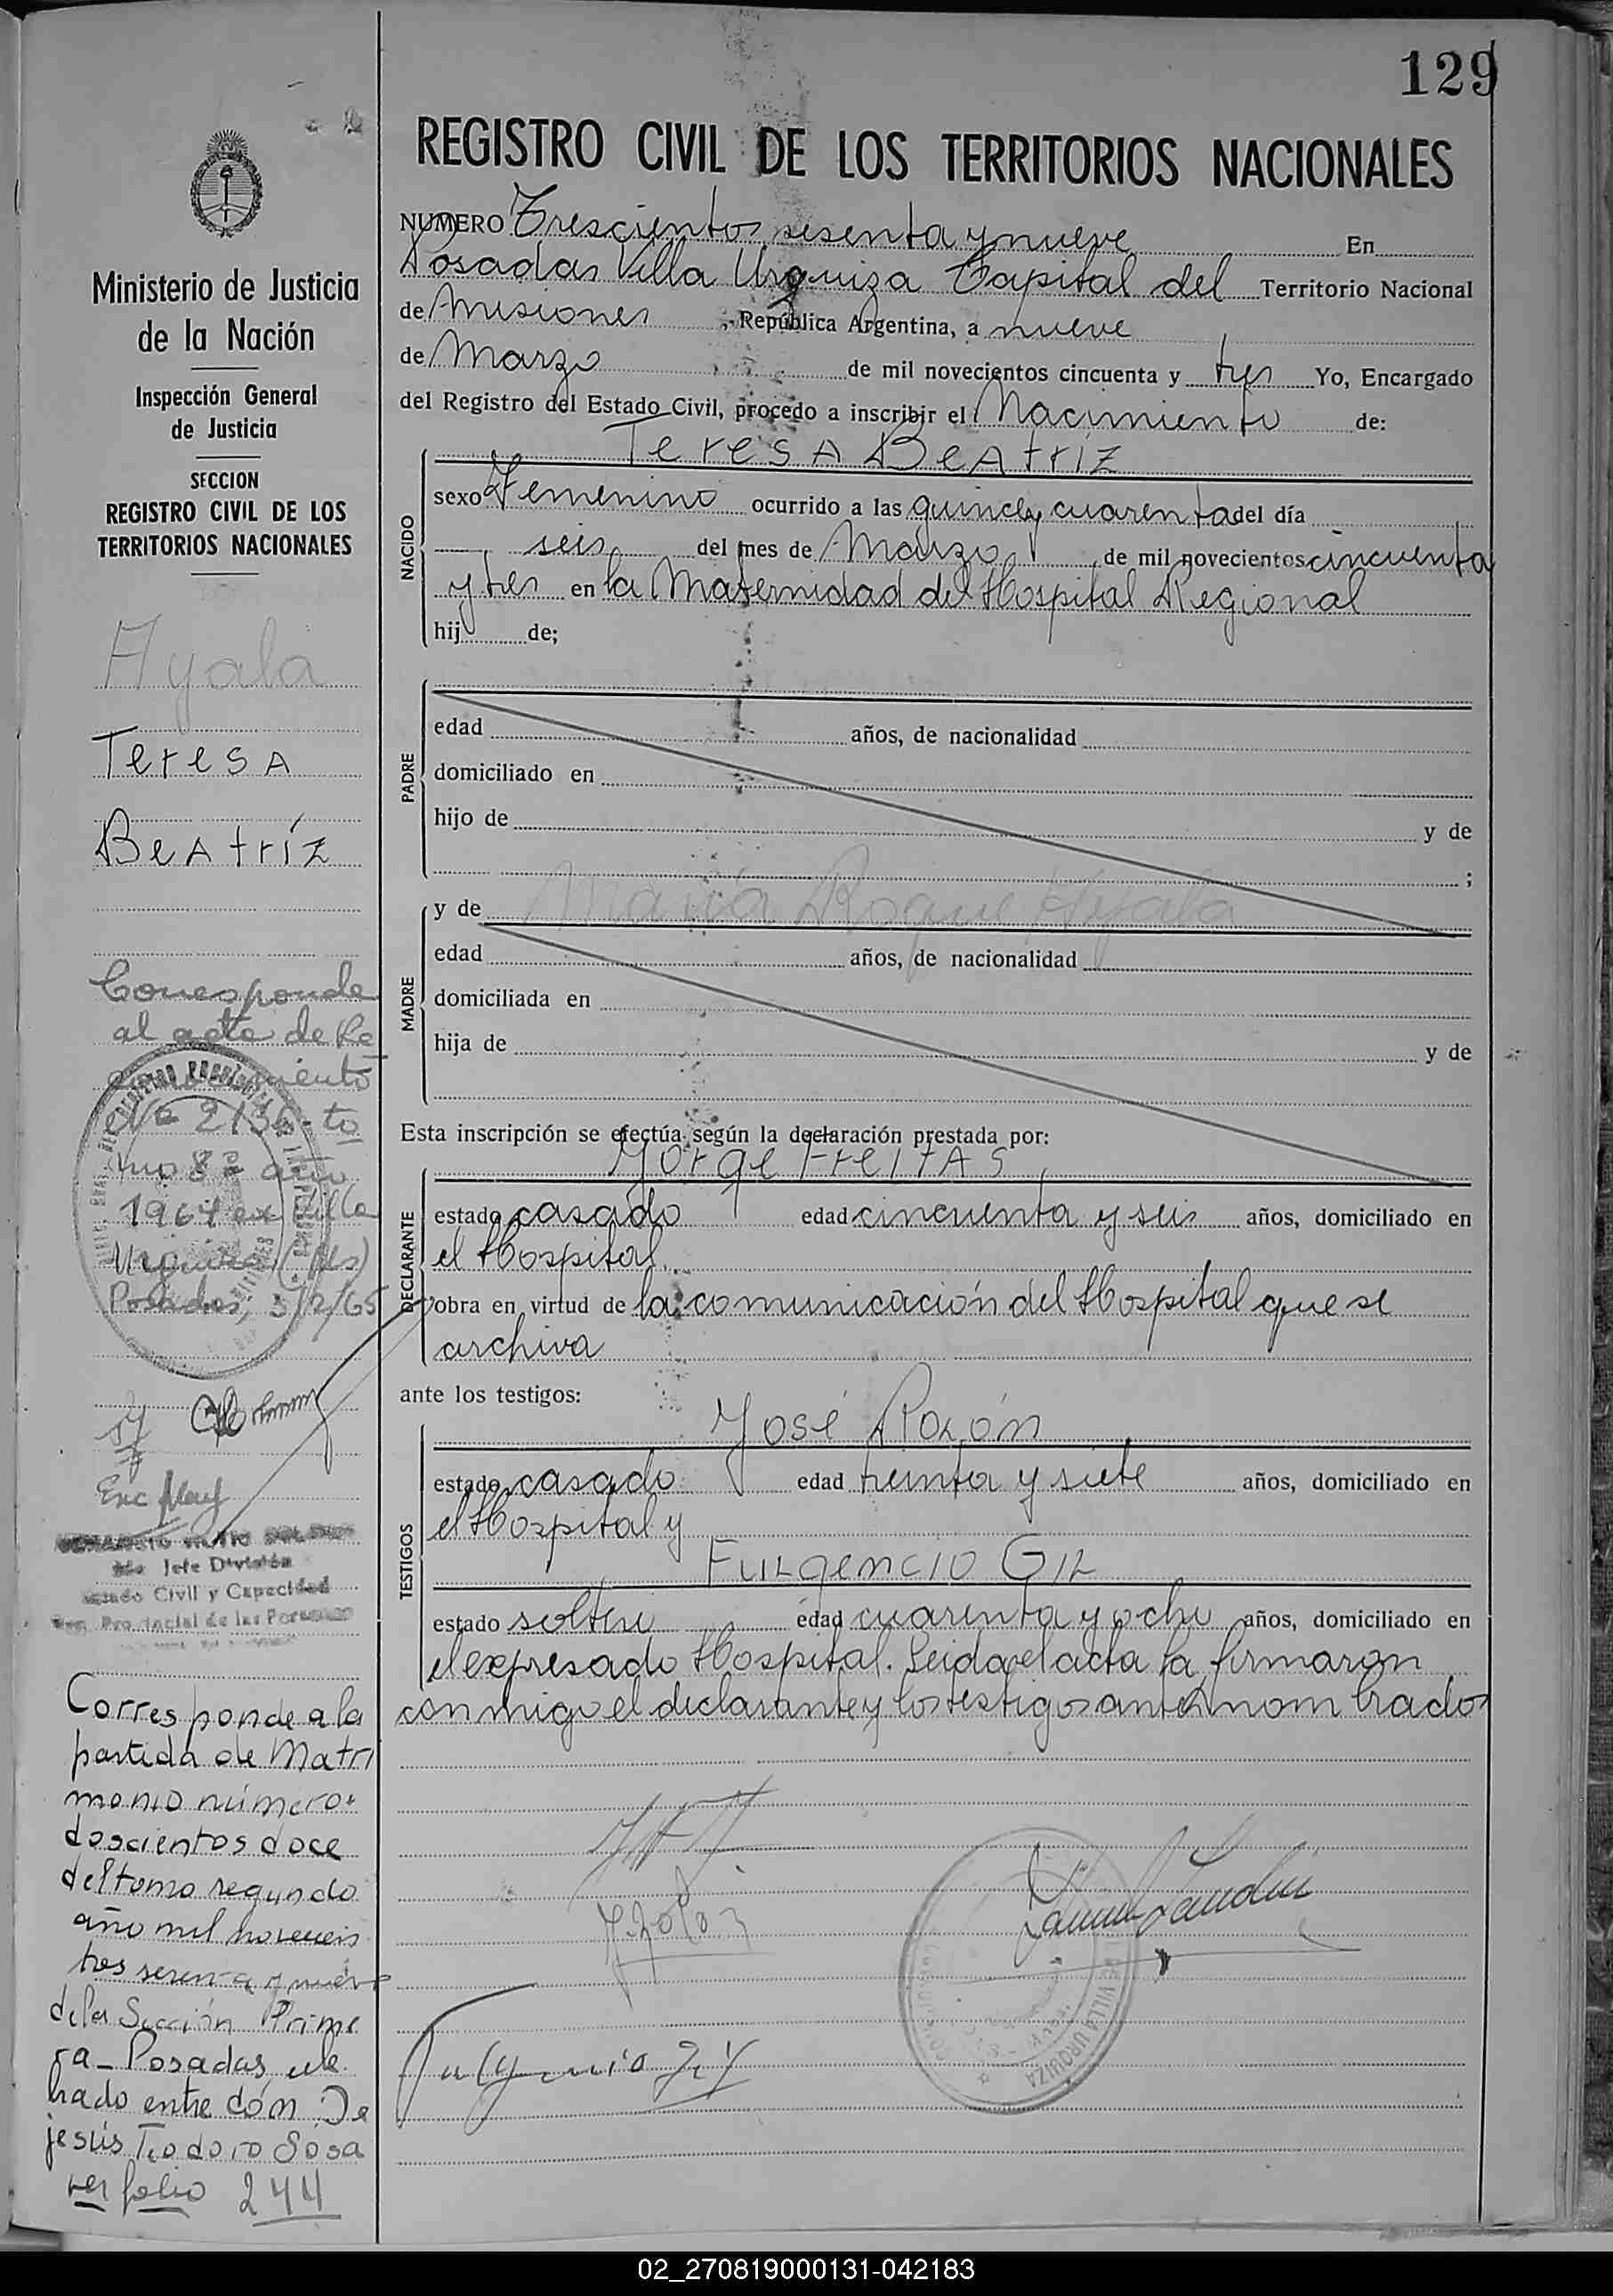 129
REGISTRO CIVIL DE LOS TERRITORIOS NACIONALES
Ministerio de Justicia
de la Nación
Inspección General
de Justicia
SECCION
REGISTRO CIVIL DE LOS
TERRITORIOS NACIONALES
Ayala
Teresa
Beatríz
Corresponde
al acta de Re
conocimiento
Nº 2136 to
mo 8º año
1964 ex Villa
Urquiza (Ms)
Posadas, 3/2/65
Jefe División
Estado Civil y Capacidad
Reg. Provincial de las Personas
Corresponde a la
partida de Matri
monio número
doscientos doce
del tomo segundo
año mil novecien
tos sesenta y nueve
de la Sección Prime
ra - Posadas, cele
brado entre don De
jesús Teodoro Sosa
ver folio 244
NUMERO Trescientos sesenta y nueve En
Posadas Villa Urquiza Capital del Territorio Nacional
de Misiones, República Argentina, a nueve
de Marzo de mil novecientos cincuenta y tres Yo, Encargado
del Registro del Estado Civil, procedo a inscribir el Nacimiento de:
Teresa Beatríz
NACIDO
sexo Femenino ocurrido a las quince y cuarenta del día
seis del mes de Marzo de mil novecientos cincuenta
y tres en la Maternidad del Hospital Regional
hij de;
PADRE
edad años, de nacionalidad
domiciliado en
hijo de y de
;
MADRE
y de María Roque Ayala
edad años, de nacionalidad
domiciliada en
hija de y de
Esta inscripción se efectúa según la declaración prestada por:
DECLARANTE
Jorge Freitas
estado casado edad cincuenta y seis años, domiciliado en
el Hospital
obra en virtud de la comunicación del Hospital que se
archiva
ante los testigos:
TESTIGOS
José Rolón
estado casado edad treinta y siete años, domiciliado en
el Hospital y
Fulgencio Gil
estado soltero edad cuarenta y ocho años, domiciliado en
el expresado Hospital. Leida el acta la firmaron
conmigo el declarante y los testigos antes nombrados
Fulgencio Gil
VILLA URQUIZA
02_270819000131-042183